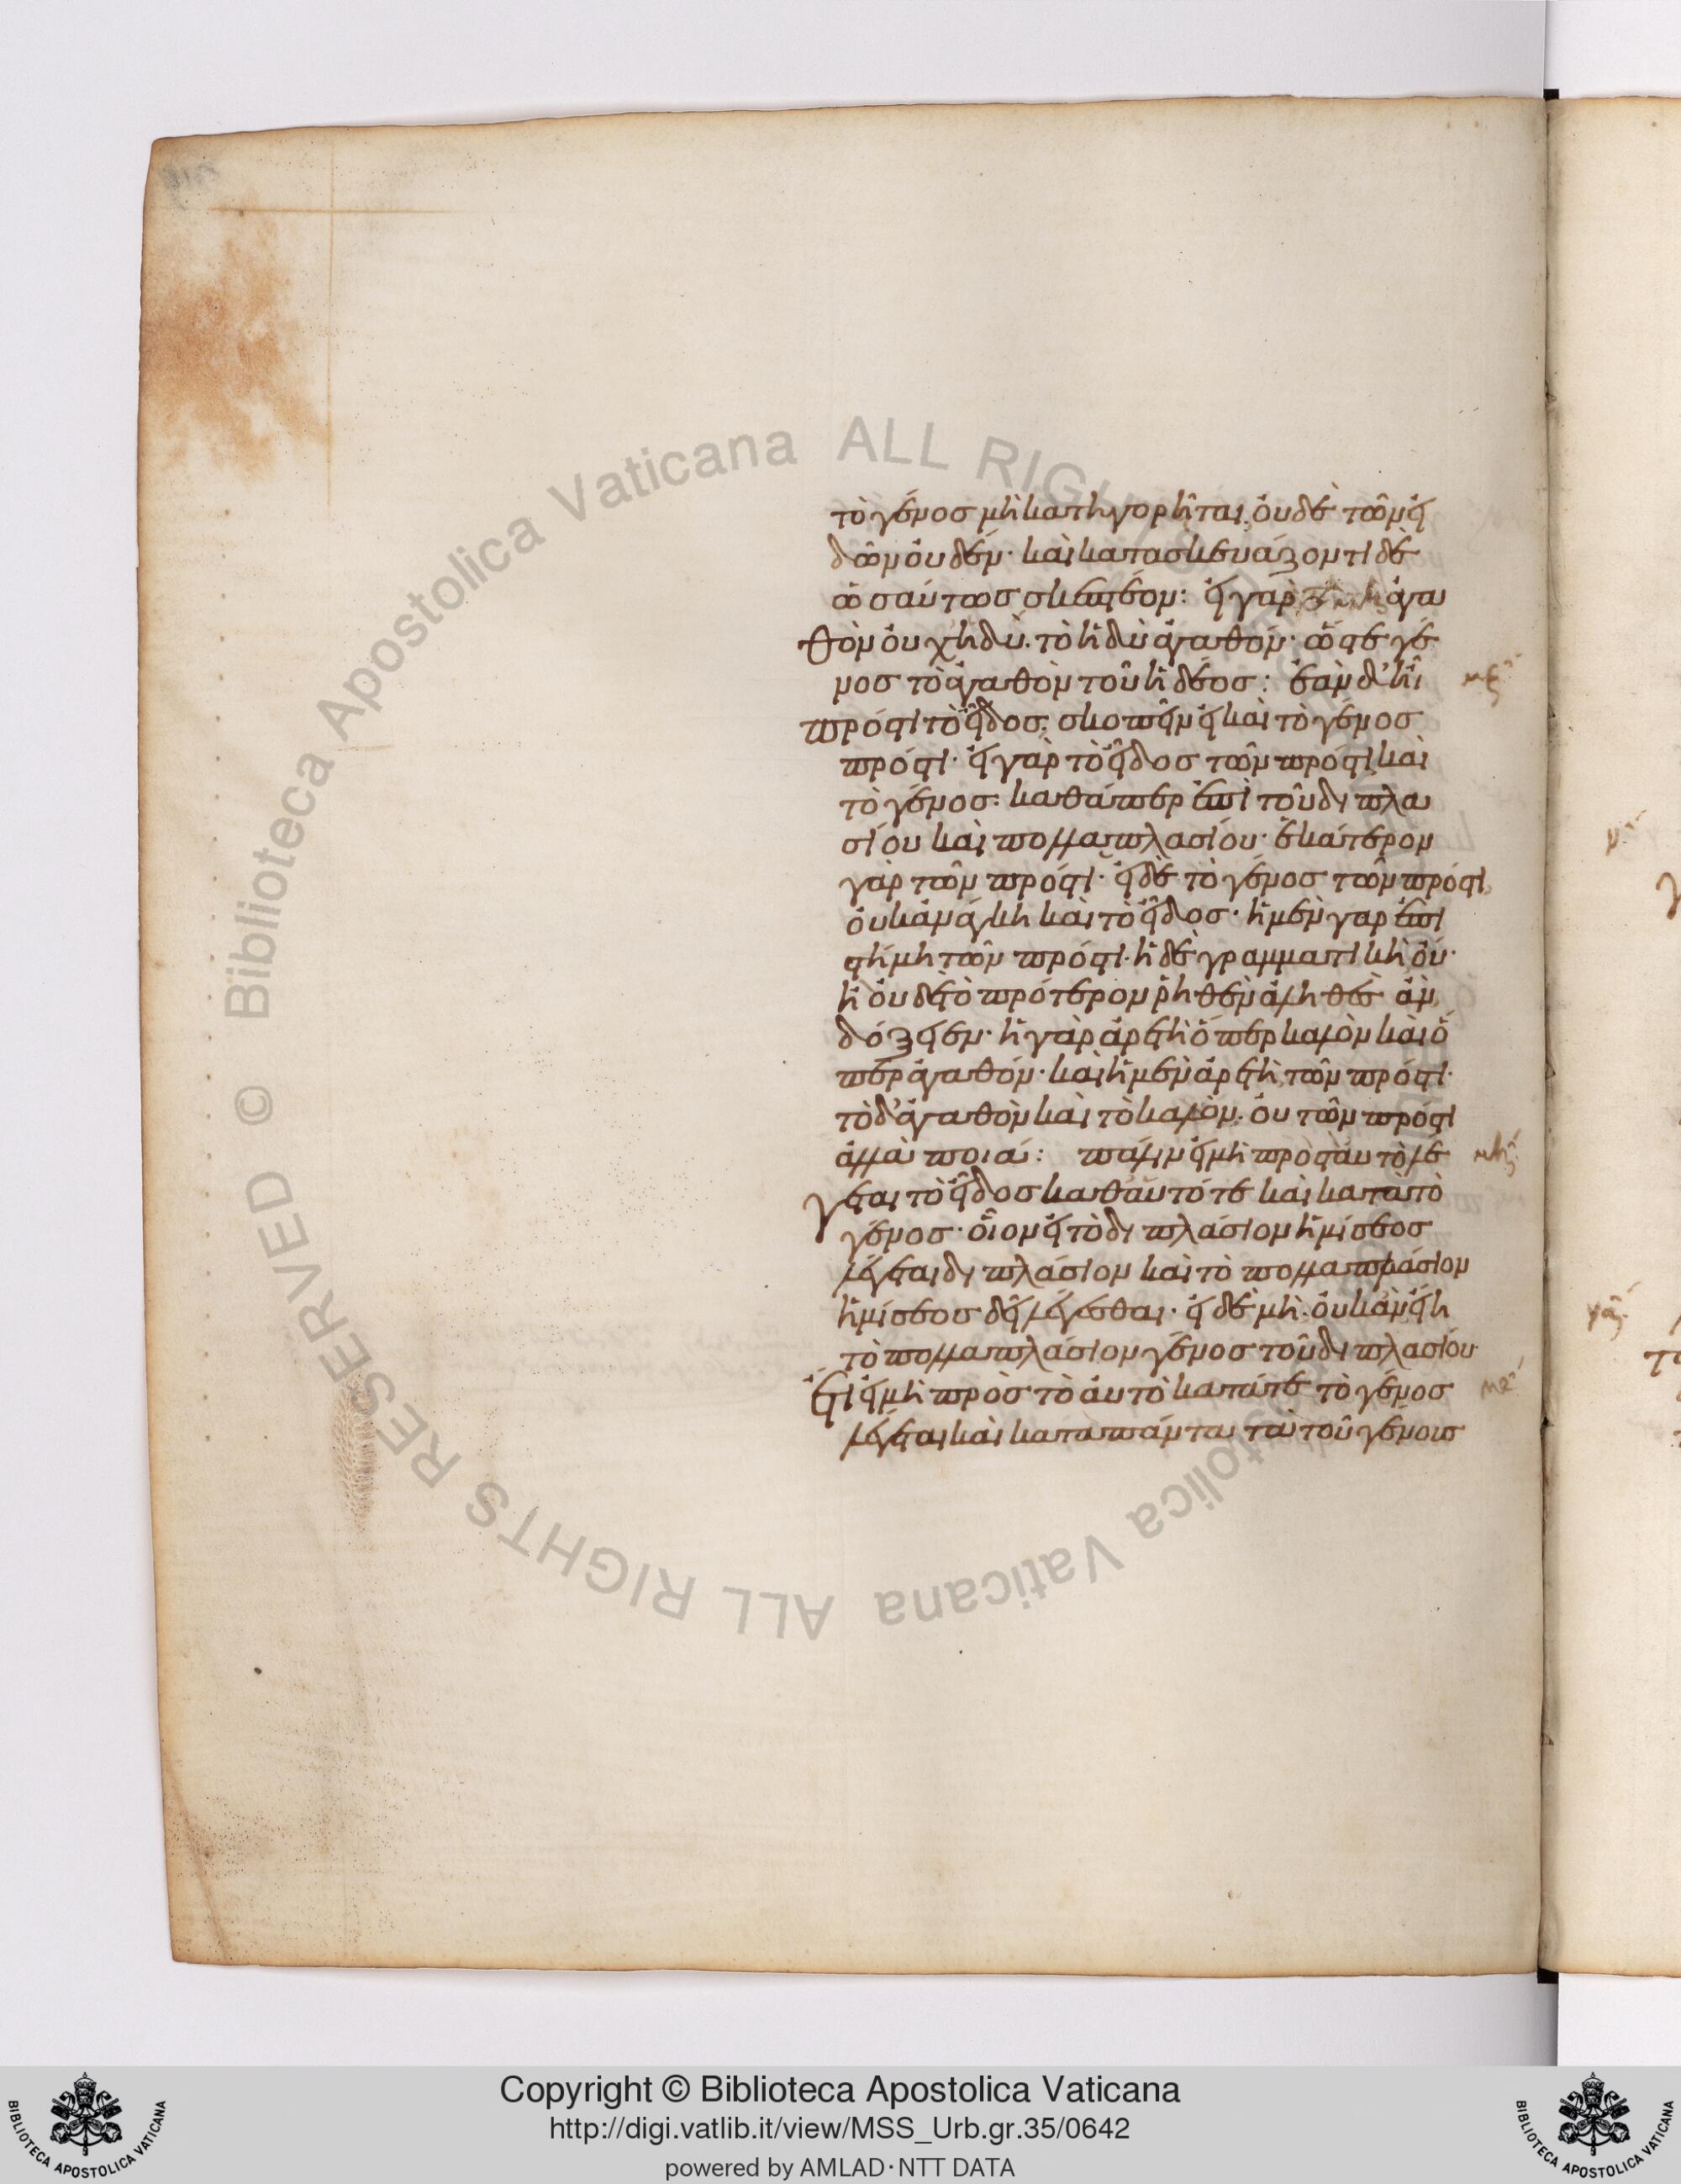 τὸ γένος μὴ κατηγορῆται. οὐδὲ τῶν εἰ
δῶν οὐδέν· καὶ κατασκευάζοντι δὲ
ὡσαύτως σκεπτέον: εἰ γὰρ ἀγα
θὸν οὐχ ἡδύ. τὸ ἡδὺ ἀγαθόν· ὥστε γέ
νος τὸ ἀγαθὸν τοῦ ἡδέος: ἐὰν δ' ἦι
πρός τι τὸ εἶδος. σκοπεῖν εἰ καὶ τὸ γένος
πρός τι· εἰ γὰρ τὸ εἶδος τῶν πρός τι καὶ
τὸ γένος: καθάπερ ἐπὶ τοῦ διπλα
σίου καὶ πολλαπλασίου· ἑκάτερον
γὰρ τῶν πρός τι· εἰ δὲ τὸ γένος τῶν πρός τι,
οὐκ ἀνάγκη καὶ τὸ εἶδος· ἡ μὲν γὰρ ἐπι
στήμη τῶν πρός τι· ἡ δὲ γραμματικὴ οὔ·
ἢ οὐδὲ τὸ πρότερον ῥηθὲν ἀληθὲς ἂν
δόξειεν· ἡ γὰρ ἀρετὴ ὅπερ καλὸν καὶ ὅ
περ ἀγαθόν· καὶ ἡ μὲν ἀρετὴ τῶν πρός τι·
τὸ δ' ἀγαθὸν καὶ τὸ καλὸν. οὐ τῶν πρός τι
ἀλλὰ ποιά: πάλιν εἰ μὴ πρὸς ταὐτὸ λέ
γεται τὸ εἶδος καθ' αὑτό τε καὶ κατὰ τὸ
γένος· οἷον εἰ τὸ διπλάσιον ἡμίσεος
λέγεται διπλάσιον καὶ τὸ πολλαπλάσιον
ἡμίσεος δεῖ λέγεσθαι· εἰ δὲ μὴ. οὐκ ἂν εἴη
τὸ πολλαπλάσιον γένος τοῦ διπλασίου·
ἔτι εἰ μὴ πρὸς τὸ αὐτὸ κατά τε τὸ γένος
λέγεται καὶ κατὰ πάντα τὰ τοῦ γένους
© Biblioteca Apostolica Vaticana ALL RIGHTS RESERVED
Copyright © Biblioteca Apostolica Vaticana
http://digi.vatlib.it/view/MSS_Urb.gr.35/0642
powered by AMLAD·NTT DATA
BIBLIOTECA APOSTOLICA VATICANA
BIBLIOTECA APOSTOLICA VATICANA